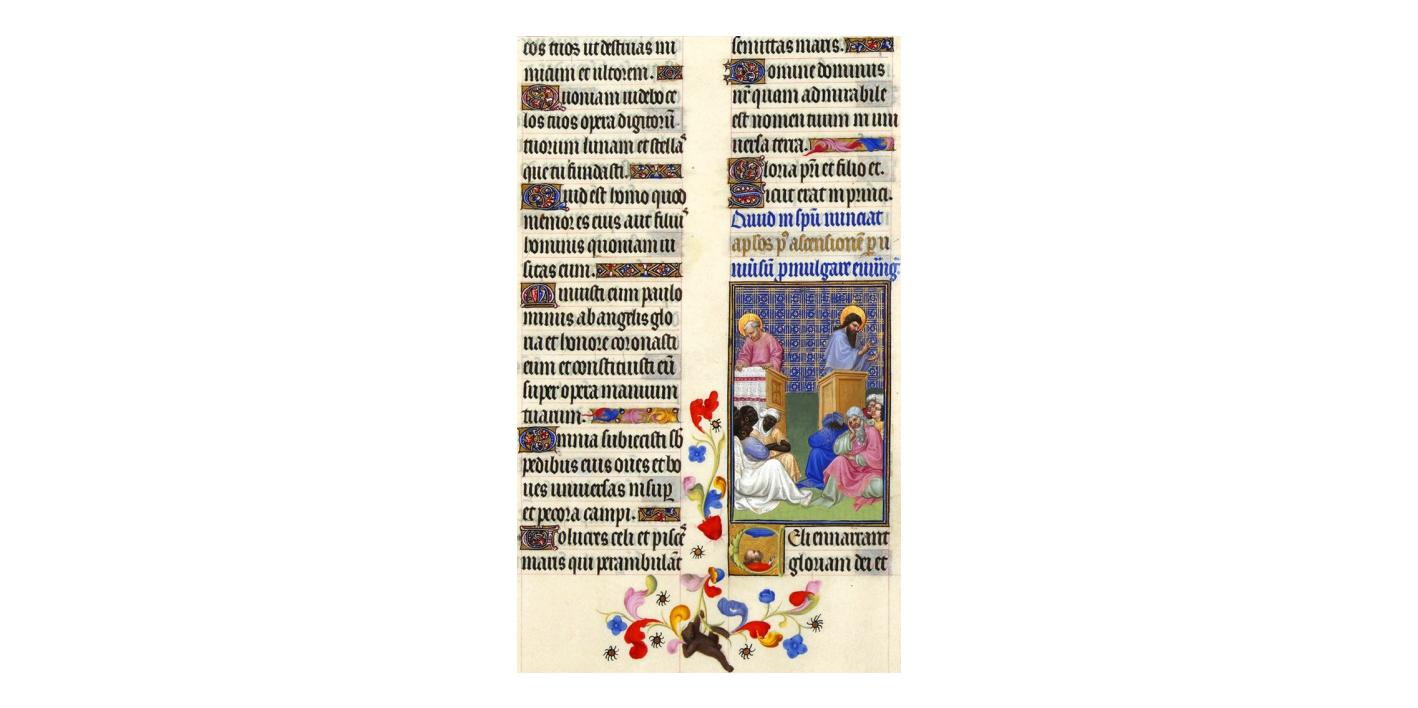 cos tuos ut destruas ini
micum et ultorem.
Quoniam uidebo ce
los tuos opera digitorū
tuorum lunam et stellas
que tu fundasti.
Quid est homo quod
memor es eius aut filius
hominis quoniam ui
sitas eum.
Minuisti eum paulo
minus ab angelis glo
ria et honore coronasti
eum et constituisti eū
super opera manuum
tuarum.
Omnia subiecisti sb
pedibus eius oues et bo
ues uniuersas insuꝑ
et pecora campi.
Uolucres celi et pisces
maris qui perambulāt
semittas maris.
Domine dominus
nr̄ quam admirabile
est nomen tuum in uni
uersa terra.
Gloria pr̄i et filio et.
Sicut erat in princi.
Dauid in spū nunciat
apl̄os pꝰ ascensionē ꝑ u
niu̅sū ꝓmulgare euuāg̅
Celi ennarrant
gloriam dei et